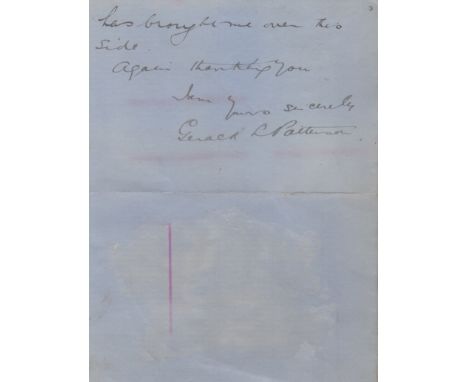 3
has brought me over this
side.
Again thanking you
I am yours sincerely
Gerald L Patterson.